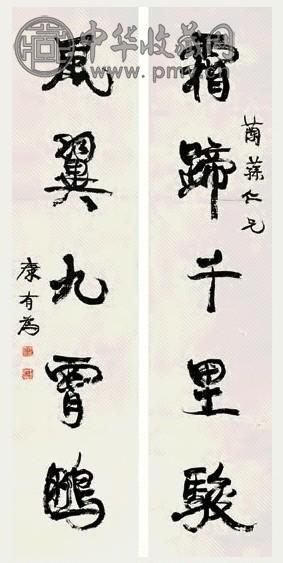 霜蹄千里駿
蘭蓀仁兄
風翼九霄鵬
康有為
中华收藏网
www.pmy.cn